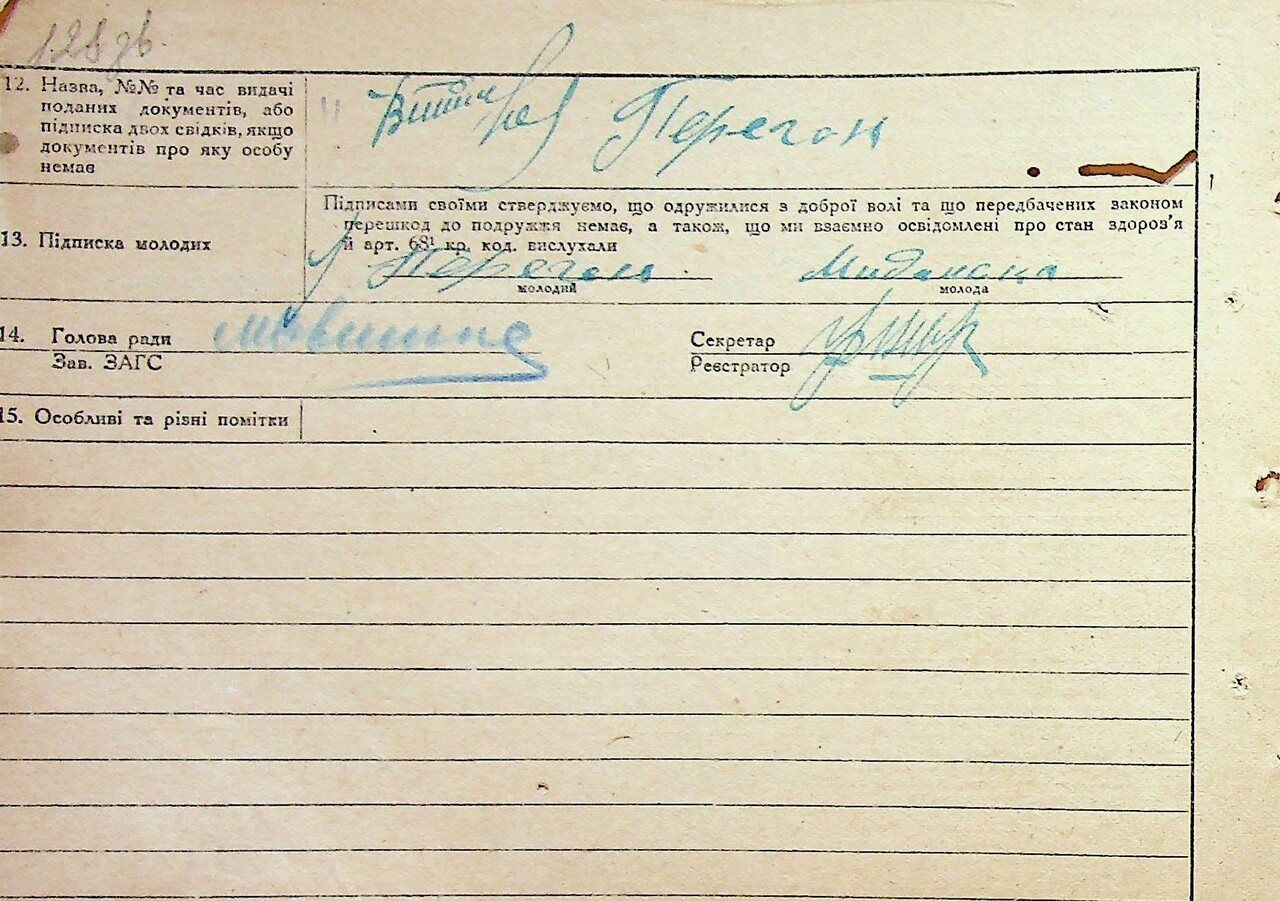 128 зв.
12. Назва, №№ та час видачі
поданих документів, або
підписка двох свідків, якщо
документів про яку особу
немає
Перегон
13. Підписка молодих
Підписами своїми стверджуємо, що одружилися з доброї волі та що передбачених законом
перешкод до подружжя немає, а також, що ми взаємно освідомлені про стан здоров'я
й арт. 68¹ кр. код. вислухали
Перегон
молодий
молода
14. Голова ради
Зав. ЗАГС
Секретар
Реєстратор
15. Особливі та різні помітки